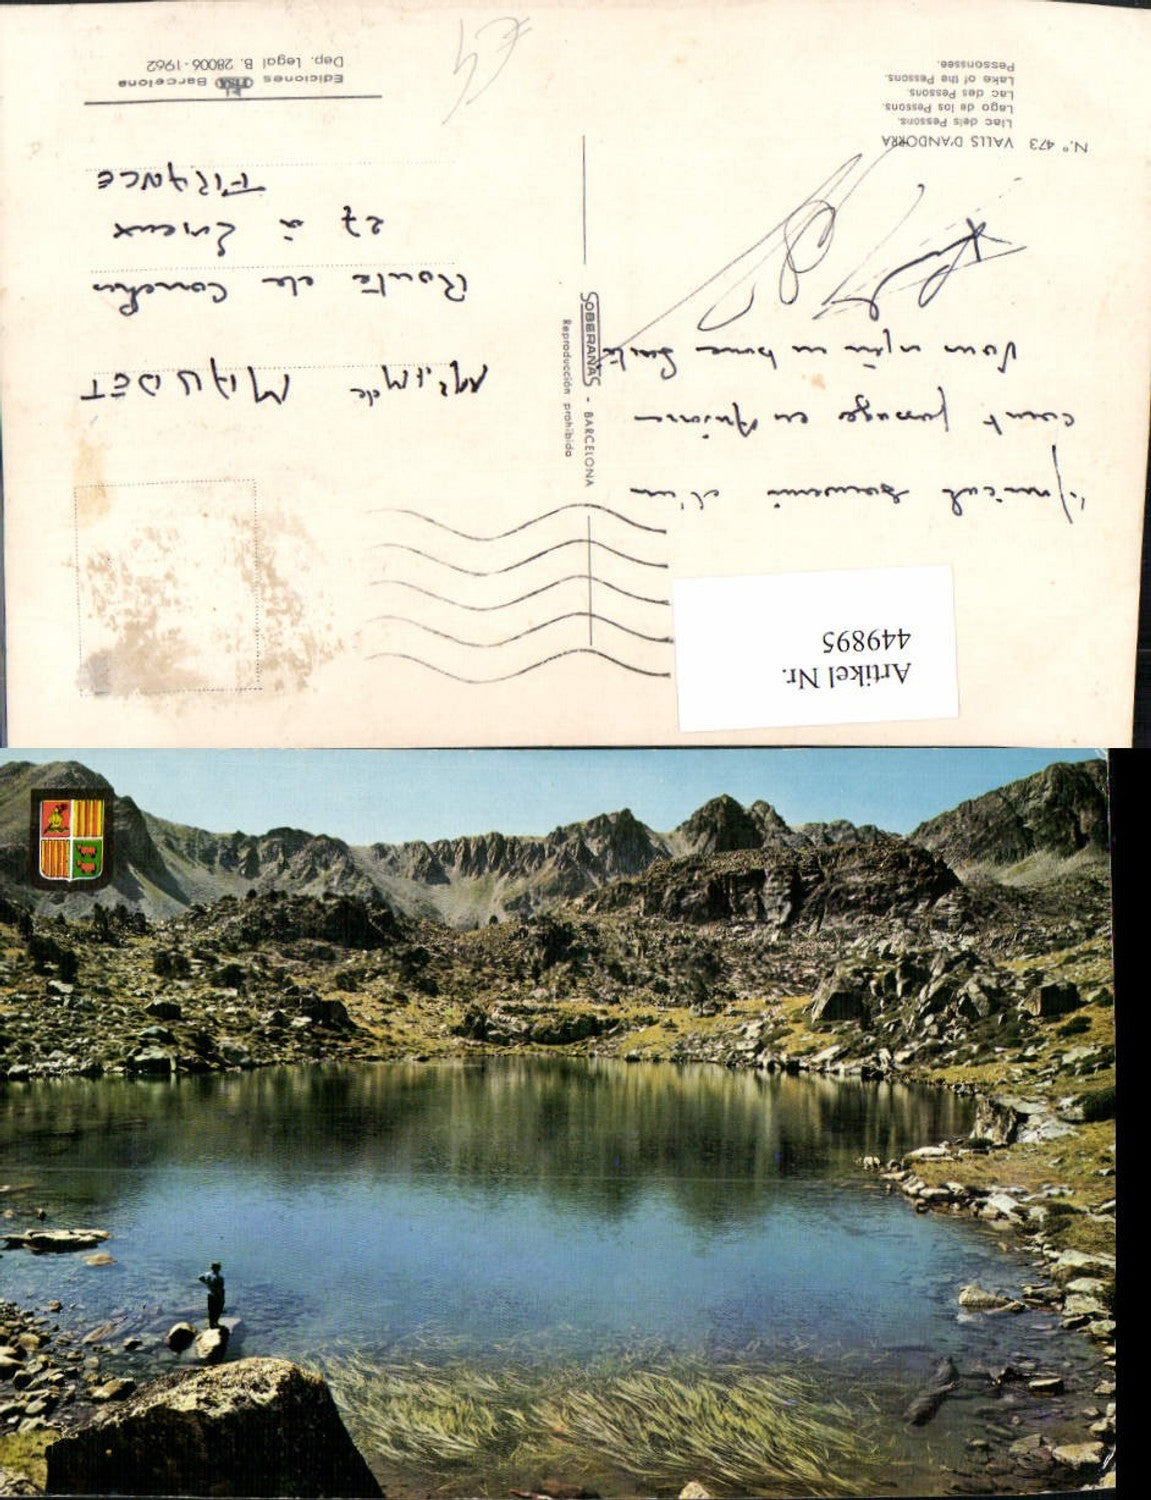 N.º 473 VALLS D'ANDORRA
Llac dels Pessons.
Lago de los Pessons.
Lac des Pessons.
Lake of the Pessons.
Pessonssee.
Amical souvenir d'un
court passage en Andorre
Pour enfin en bonne Santé
SOBERANAS - BARCELONA
Reproducción prohibida
Mr, Mde MAUDET
Route de Conches
27 à Evreux
FRANCE
Ediciones FISA Barcelona
Dep. Legal B. 28006-1962
Artikel Nr.
449895